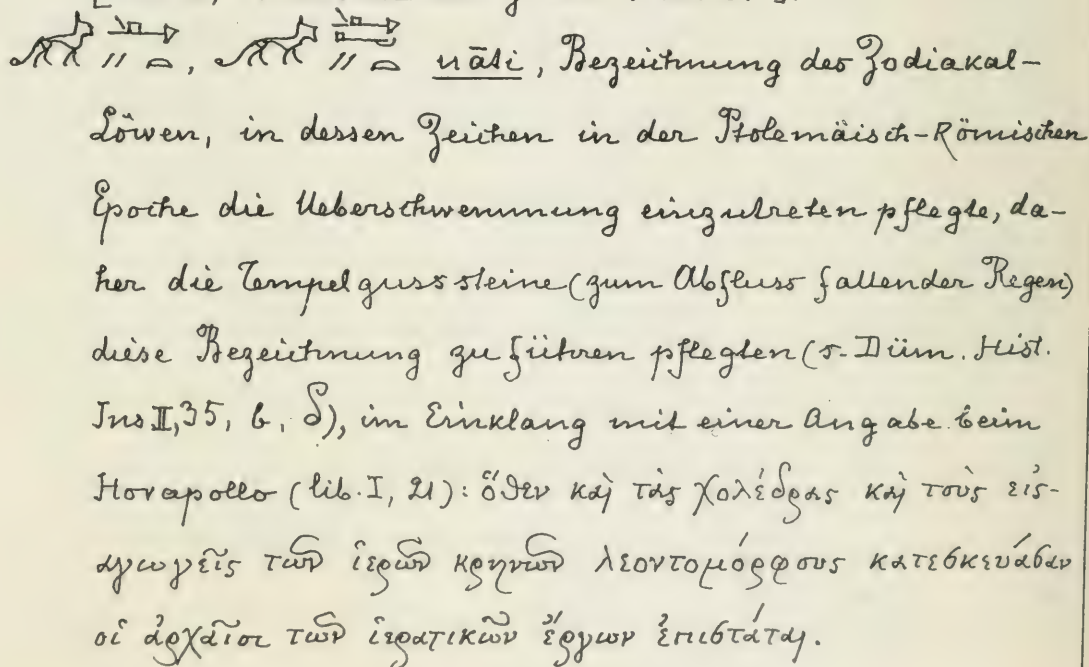 nāti, Bezeichnung des Zodiakal-
Löwen, in dessen Zeichen in der Ptolemäisch-Römischen
Epoche die Ueberschwemmung einzutreten pflegte, da-
her die Tempelgusssteine (zum Abfluss fallender Regen)
diese Bezeichnung zu führen pflegten (s. Düm. Hist.
Ins II, 35, b, δ), im Einklang mit einer Angabe beim
Horapollo (lib. I, 21): ὅθεν καὶ τὰς χολέδρας καὶ τοὺς εἰς-
αγωγεῖς τῶν ἱερῶν κρηνῶν λεοντομόρφους κατεσκεύασαν
οἱ ἀρχαῖοι τῶν ἱερατικῶν ἔργων ἐπιστάται.